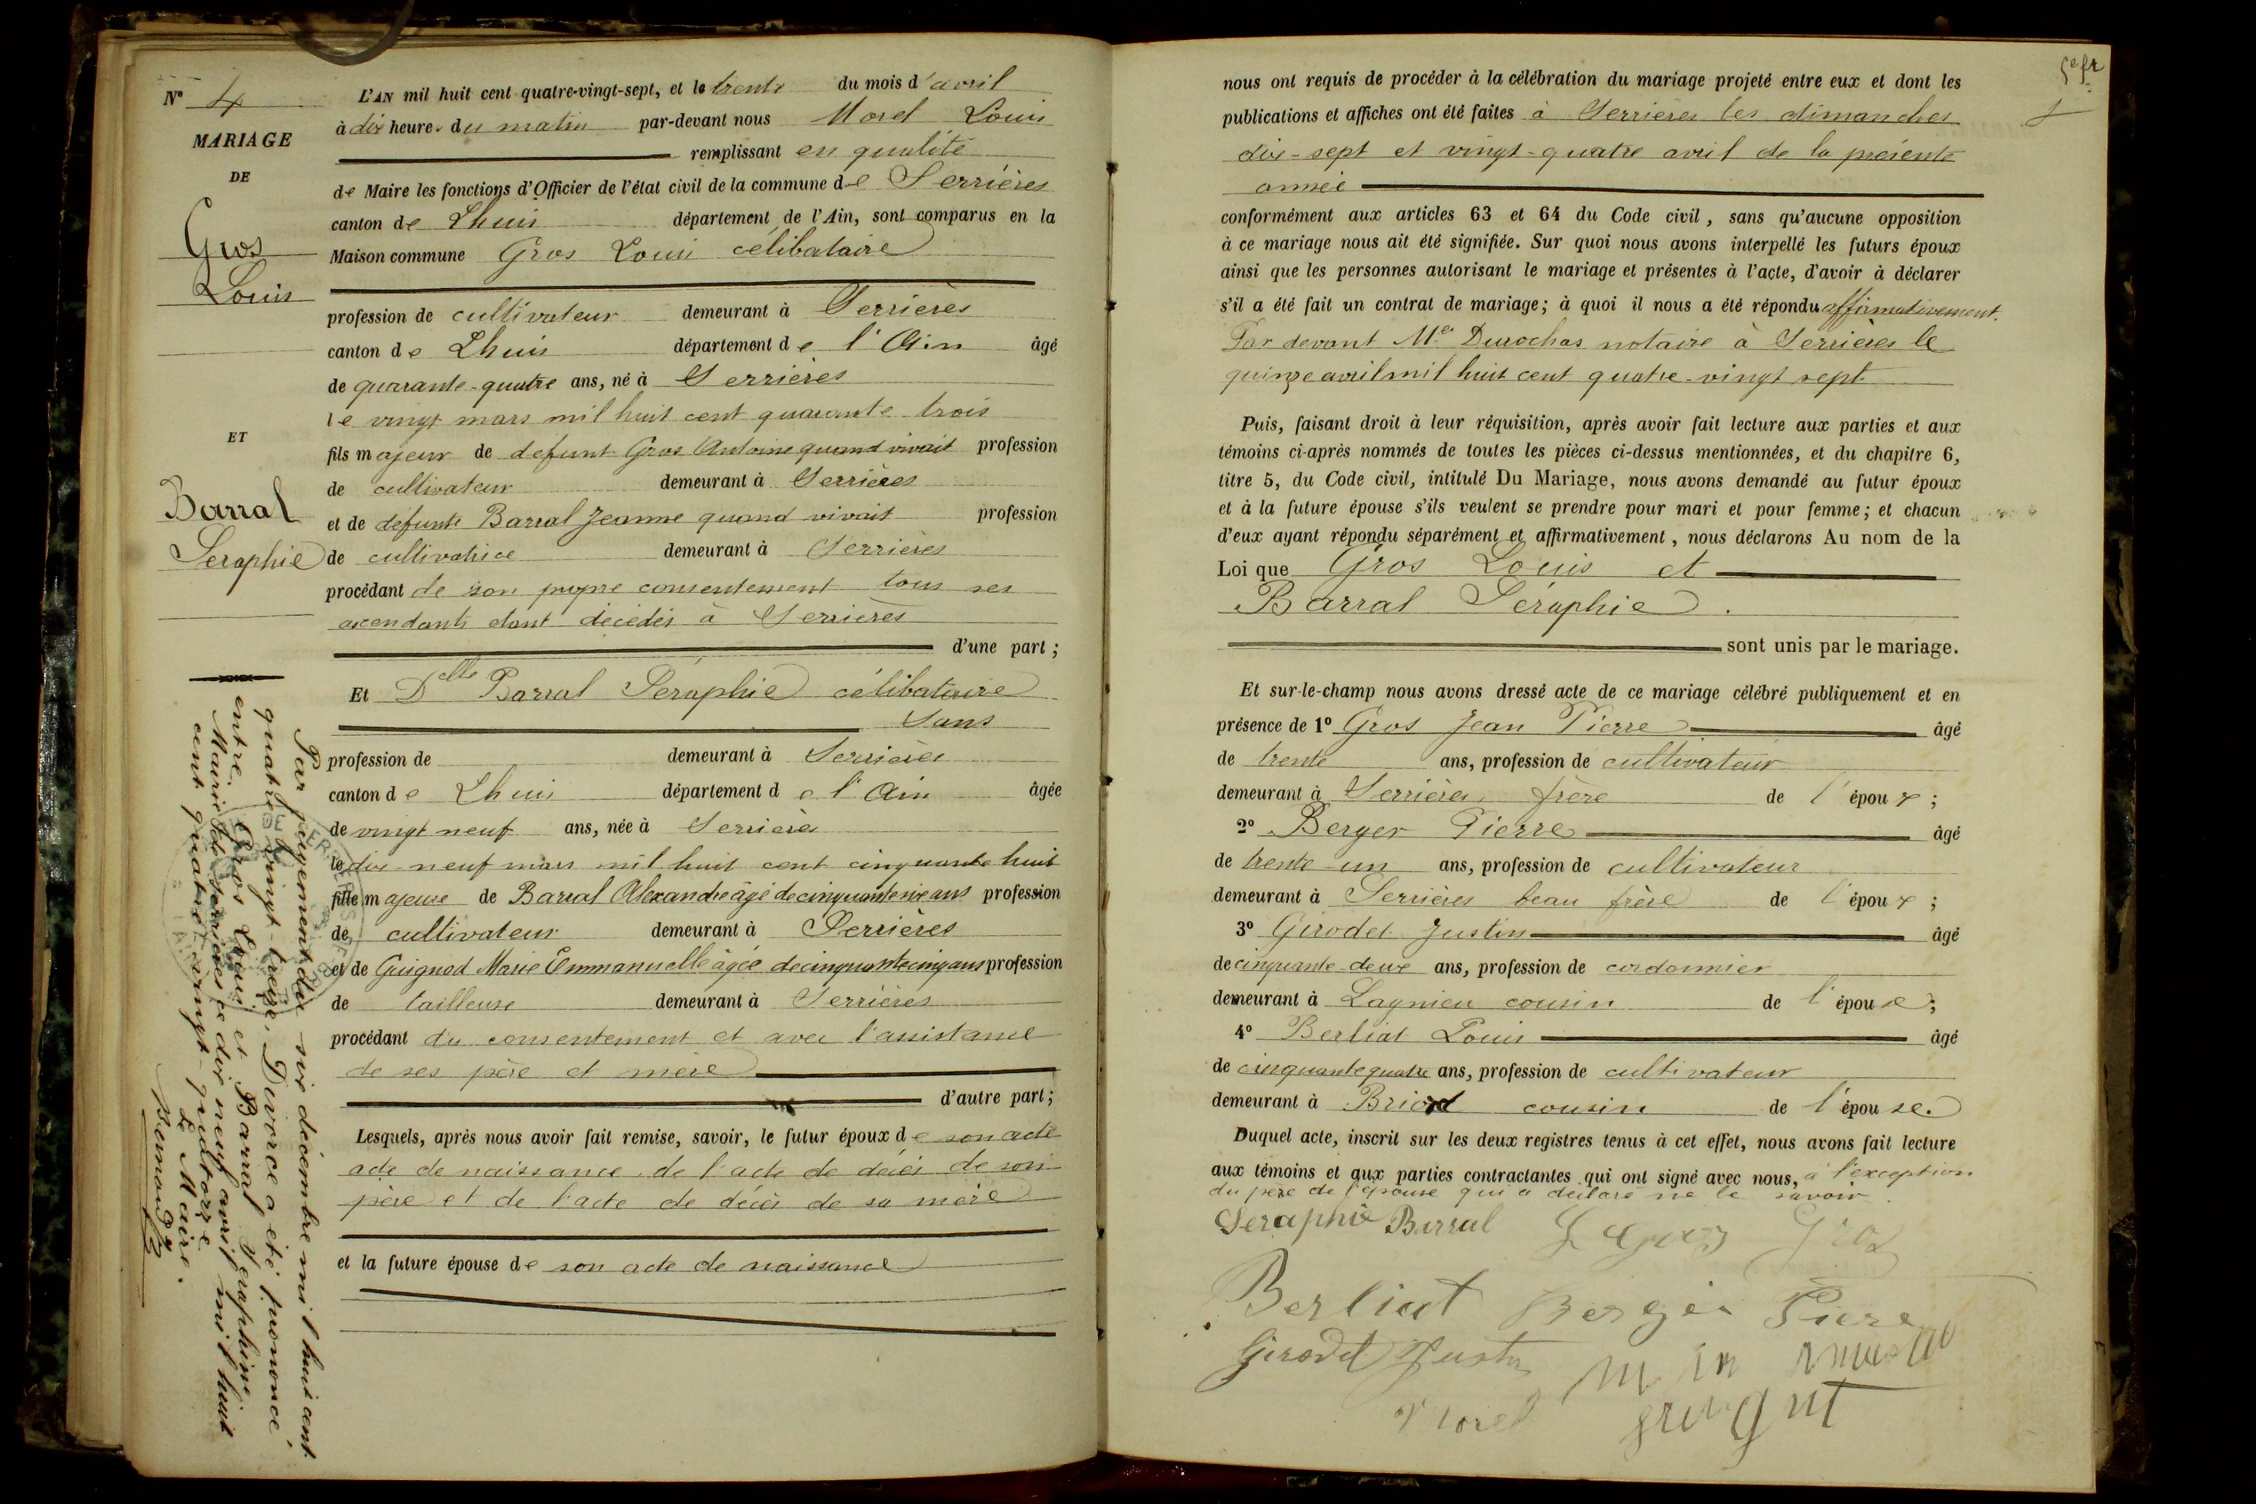 N° 4
MARIAGE
DE
Gros
Louis
ET
Barral
Seraphie
Par jugement du six décembre mil huit cent
quatre vingt-treize, Divorce a été prononcé,
entre Gros Louis et Barral Seraphine
Mairie de Serrières le dix neuf avril mil huit
cent quatre vingt-quatorze
Le Maire.
L'AN mil huit cent quatre-vingt-sept, et le trente du mois d'avril
à dix heures du matin par-devant nous Morel Louis
remplissant en qualité
de Maire les fonctions d'Officier de l'état civil de la commune de Serrières
canton de Lhuis département de l'Ain, sont comparus en la
Maison commune Gros Louis célibataire
profession de cultivateur demeurant à Serrières
canton de Lhuis département de l'Ain âgé
de quarante-quatre ans, né à Serrières
le vingt mars mil huit cent quarante trois
fils majeur de defunt Gros Antoine quand vivait profession
de cultivateur demeurant à Serrières
et de defunte Barral Jeanne quand vivait profession
de cultivatrice demeurant à Serrières
procédant de son propre consentement tous ses
ascendants etant décédés à Serrières
d'une part ;
Et Delle Barral Séraphie célibataire
Sans
profession de demeurant à Serrières
canton de Lhuis département de l'Ain âgée
de vingt neuf ans, née à Serrières
le dix-neuf mars mil huit cent cinquante huit
fille majeure de Barral Alexandre âgé de cinquante six ans profession
de cultivateur demeurant à Serrières
et de Guignod Marie Emmanuelle âgée de cinquante cinq ans profession
de tailleuse demeurant à Serrières
procédant du consentement et avec l'assistance
de ses père et mère
d'autre part ;
Lesquels, après nous avoir fait remise, savoir, le futur époux de son acte
acte de naissance de l'acte de décès de son
père et de l'acte de décès de sa mère
et la future épouse de son acte de naissance
nous ont requis de procéder à la célébration du mariage projeté entre eux et dont les
publications et affiches ont été faites à Serrières les dimanches
dix-sept et vingt-quatre avril de la présente
année
conformément aux articles 63 et 64 du Code civil, sans qu'aucune opposition
à ce mariage nous ait été signifiée. Sur quoi nous avons interpellé les futurs époux
ainsi que les personnes autorisant le mariage et présentes à l'acte, d'avoir à déclarer
s'il a été fait un contrat de mariage; à quoi il nous a été répondu affirmativement.
Par devant Me Durochas notaire à Serrières le
quinze avril mil huit cent quatre-vingt sept
Puis, faisant droit à leur réquisition, après avoir fait lecture aux parties et aux
témoins ci-après nommés de toutes les pièces ci-dessus mentionnées, et du chapitre 6,
titre 5, du Code civil, intitulé Du Mariage, nous avons demandé au futur époux
et à la future épouse s'ils veulent se prendre pour mari et pour femme; et chacun
d'eux ayant répondu séparément et affirmativement, nous déclarons Au nom de la
Loi que Gros Louis et
Barral Séraphie.
sont unis par le mariage.
Et sur-le-champ nous avons dressé acte de ce mariage célébré publiquement et en
présence de 1° Gros Jean Pierre âgé
de trente ans, profession de cultivateur
demeurant à Serrières, frère de l'époux ;
2° Berger Pierre âgé
de trente-un ans, profession de cultivateur
demeurant à Serrières beau frère de l'époux ;
3° Girodet Justin âgé
de cinquante-deux ans, profession de cordonnier
demeurant à Lagnieu cousin de l'épouse ;
4° Berliat Louis âgé
de cinquante quatre ans, profession de cultivateur
demeurant à Briord cousin de l'épouse.
Duquel acte, inscrit sur les deux registres tenus à cet effet, nous avons fait lecture
aux témoins et aux parties contractantes qui ont signé avec nous, à l'exception
du père de l'épouse qui a déclaré ne le savoir
Seraphie Barral Gros
Berliat Berger Piere
Girodet Justin
Morel